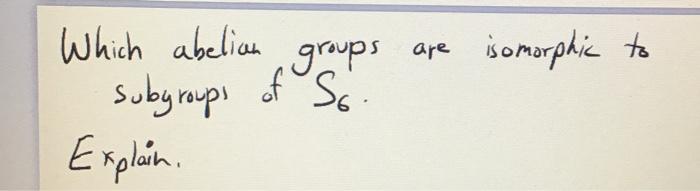 Which abelian groups are isomorphic to
subgroups of S6.
Explain.